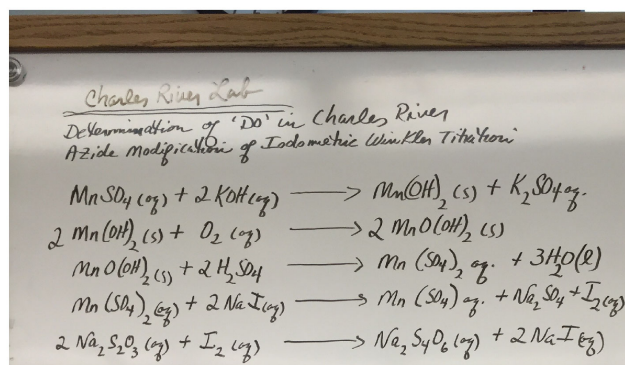 Charles River Lab
Determination of 'DO' in Charles River
Azide Modification of Iodometric Winkler Titration
MnSO₄ (aq) + 2 KOH (aq) ⟶ Mn(OH)₂ (s) + K₂SO₄ aq.
2 Mn(OH)₂ (s) + O₂ (aq) ⟶ 2 MnO(OH)₂ (s)
MnO(OH)₂ (s) + 2 H₂SO₄ ⟶ Mn (SO₄)₂ aq. + 3H₂O(l)
Mn (SO₄)₂ (aq) + 2 NaI (aq) ⟶ Mn (SO₄) aq. + Na₂SO₄ + I₂ (aq)
2 Na₂S₂O₃ (aq) + I₂ (aq) ⟶ Na₂S₄O₆ (aq) + 2 NaI (aq)